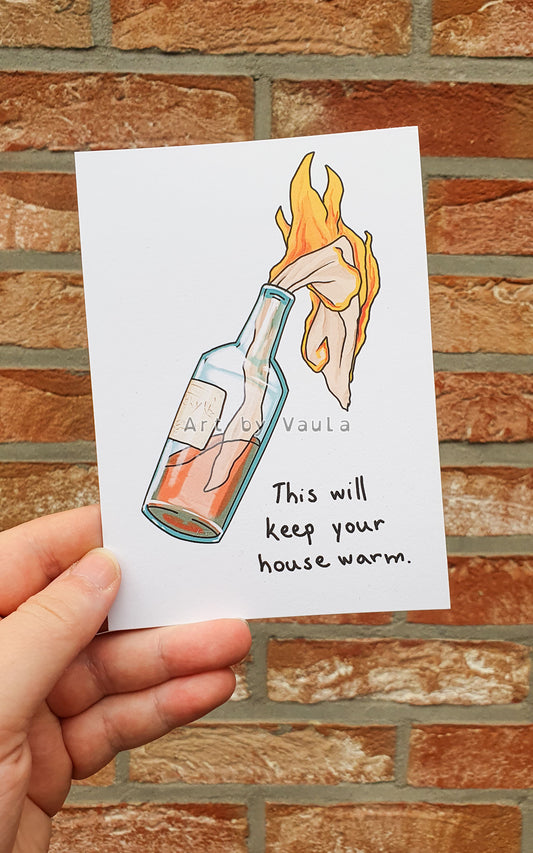 Art by Vaula
This will
keep your
house warm.